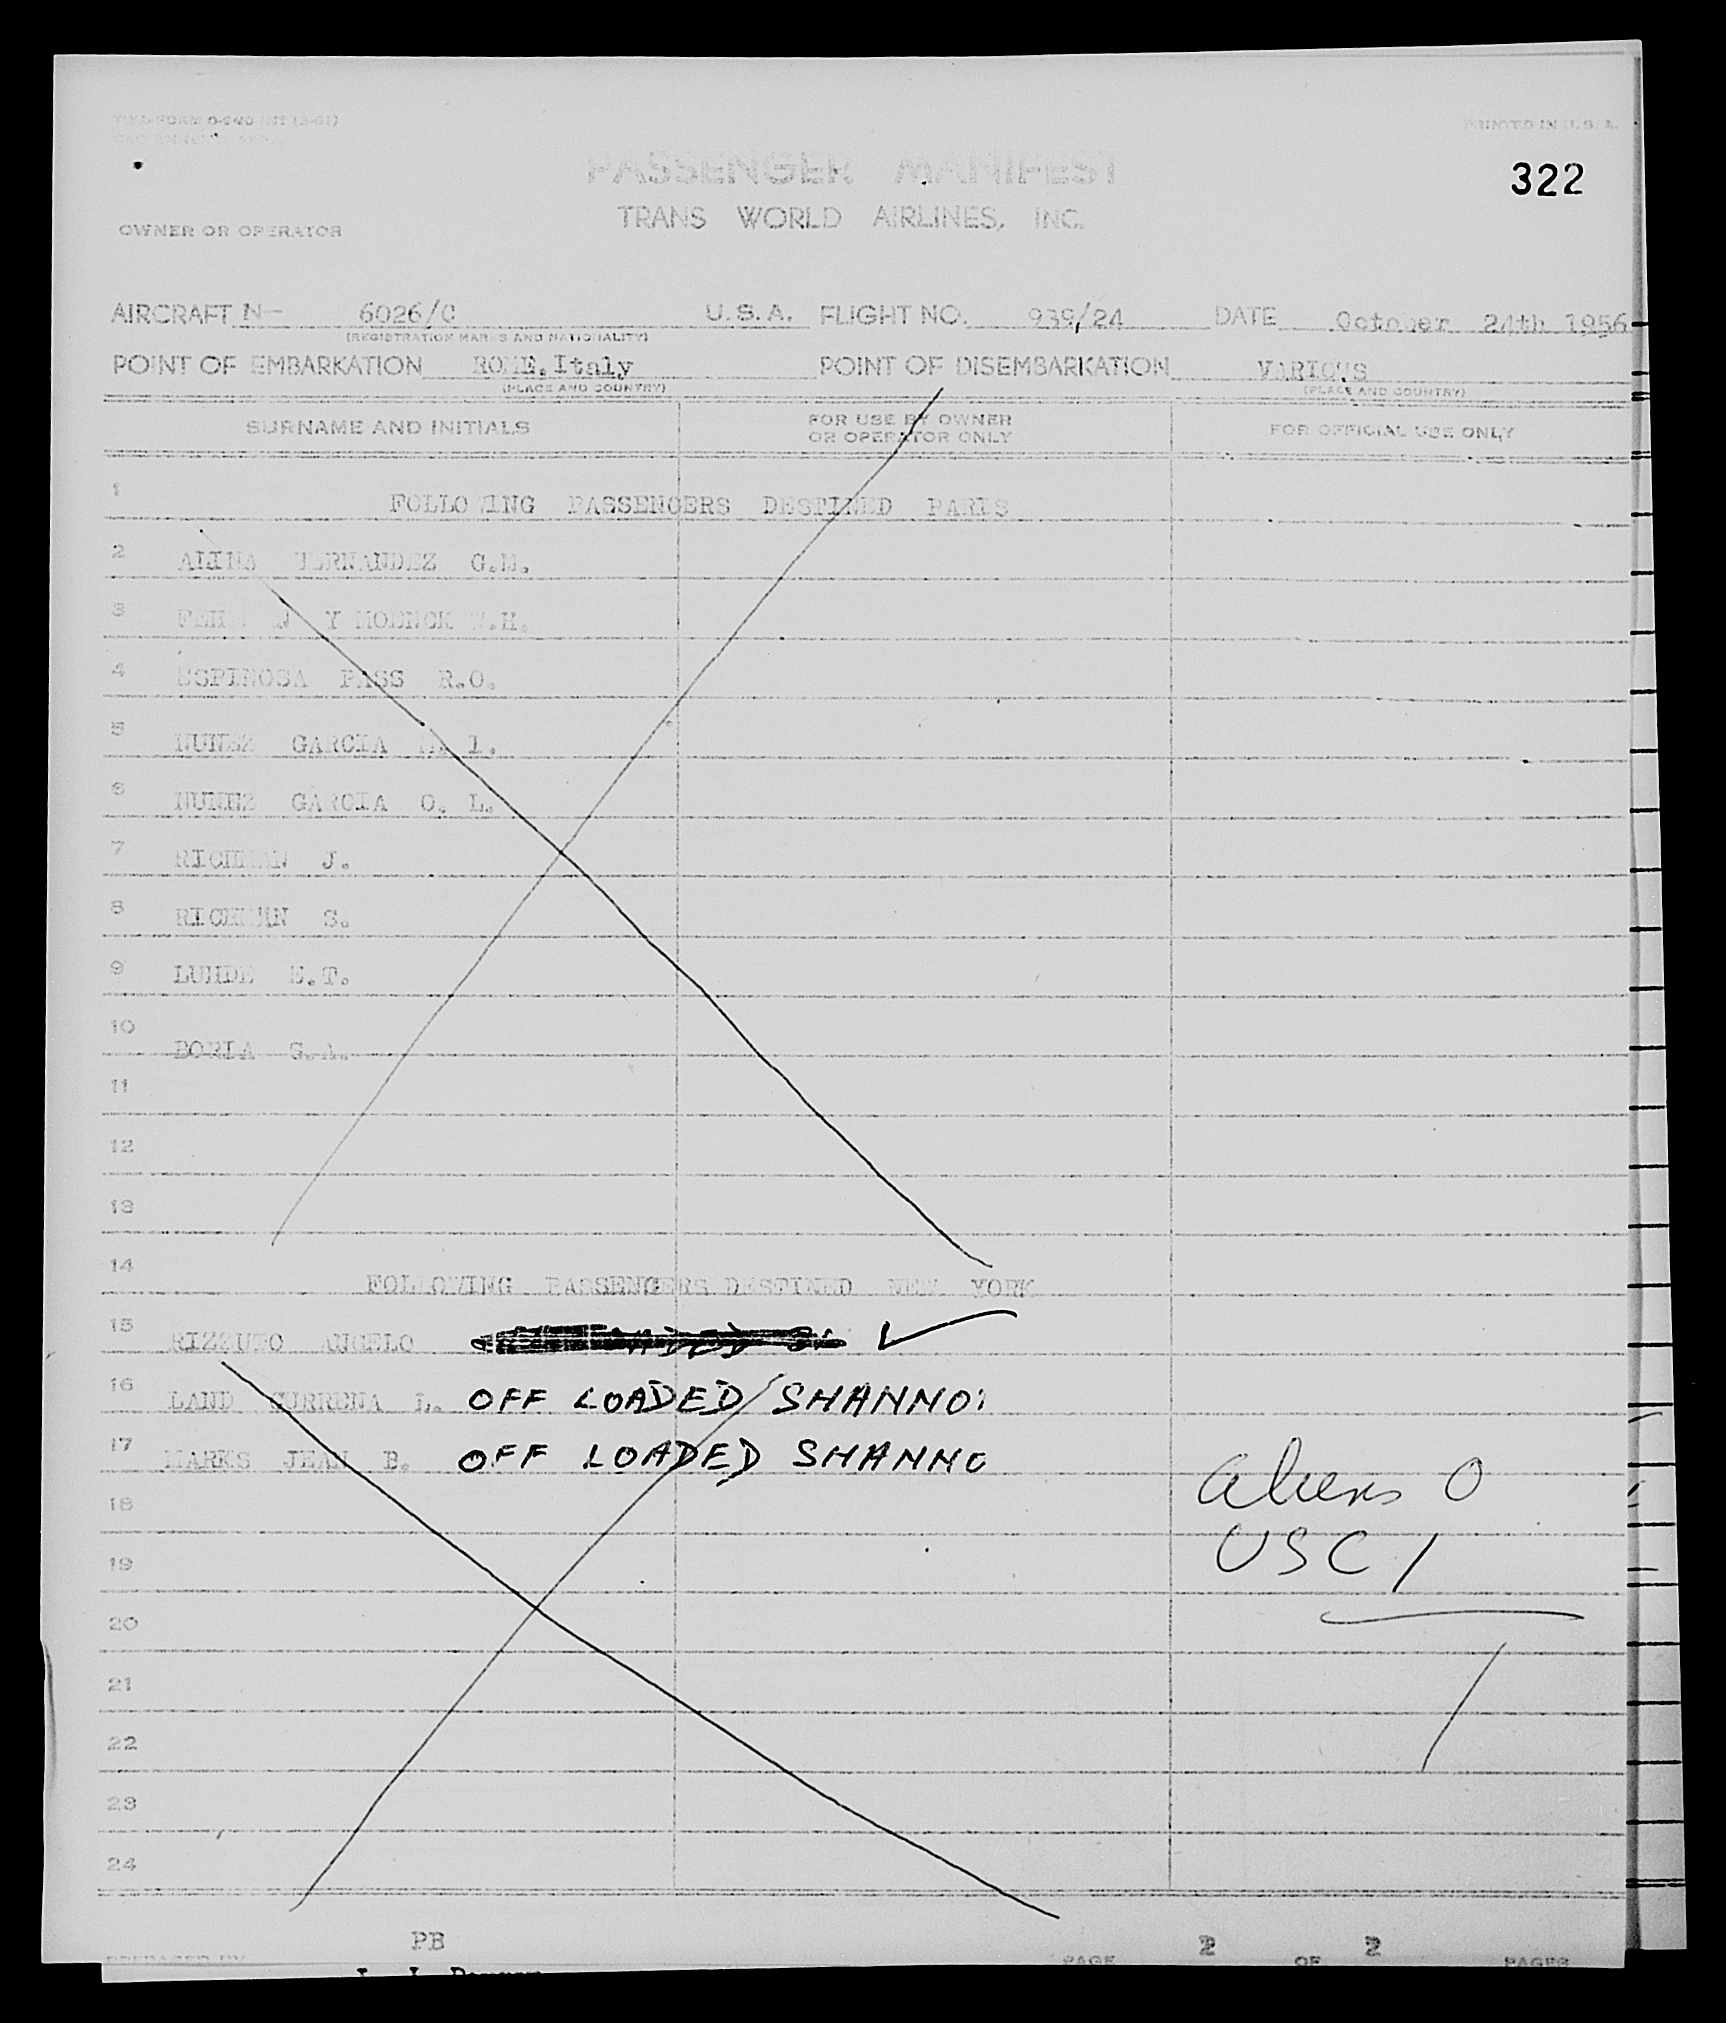 PRINTED IN U. S. A.
PASSENGER MANIFEST
322
TRANS WORLD AIRLINES, INC.
OWNER OR OPERATOR
AIRCRAFT N- 6026/C U. S. A. FLIGHT NO. 939/24 DATE October 24th 1956
(REGISTRATION MARKS AND NATIONALITY)
POINT OF EMBARKATION ROME. Italy POINT OF DISEMBARKATION VARIOUS
(PLACE AND COUNTRY) (PLACE AND COUNTRY)
SURNAME AND INITIALS FOR USE BY OWNER OR OPERATOR ONLY FOR OFFICIAL USE ONLY
1 FOLLOWING PASSENGERS DESTINED PARIS
2 ALINA G.M.
3 Y
4 ESPINOSA PASS R.O.
5 NUNEZ GARCIA I.
6 NUNEZ GARCIA O. L.
7 RICHMAN J.
8 RICHMAN S.
9 E.T.
10 BORIA G.A.
11
12
13
14 FOLLOWING PASSENGERS DESTINED NEW YORK
15 RIZZUTO ANGELO
16 LAND L. OFF LOADED SHANNO
17 MARKS JEAN B. OFF LOADED SHANNO
18
Aliens 0
19
USC 1
20
21
1
22
23
24
PB
PREPARED BY PAGE 2 OF 2 PAGES